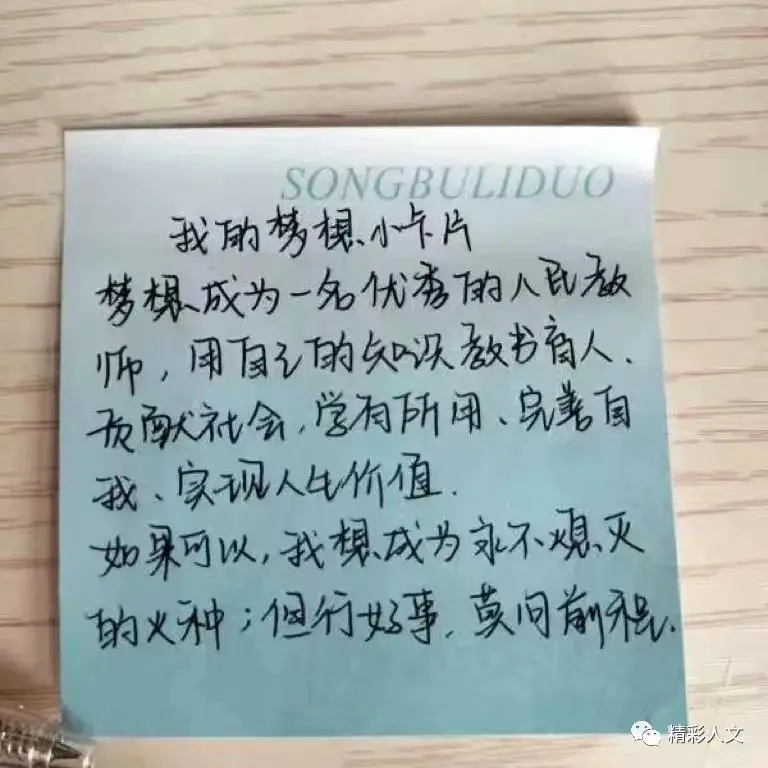 SONGBULIDUO
我的梦想小卡片
梦想成为一名优秀的人民教
师，用自己的知识教书育人、
贡献社会，学有所用、完善自
我、实现人生价值.
如果可以，我想成为永不熄灭
的火种；但行好事，莫问前程.
精彩人文